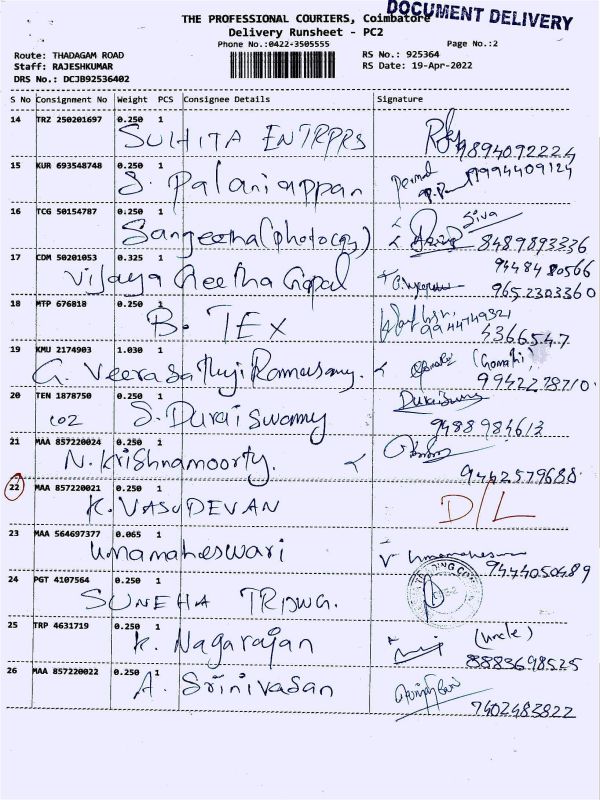 DOCUMENT DELIVERY
THE PROFESSIONAL COURIERS, Coimbatore
Delivery Runsheet - PC2
Phone No.:0422-3505555
Page No.:2
Route: THADAGAM ROAD
RS No.: 925364
Staff: RAJESHKUMAR
RS Date: 19-Apr-2022
DRS No.: DCJB92536402
S No Consignment No Weight PCS Consignee Details Signature
14 TRZ 250201697 0.250 1
SUHITA ENTRPRS 9894092224
15 KUR 693548748 0.250 1
S. Palaniappan 9994409124
16 TCG 50154787 0.250 1
Sangeetha (photocopy) Siva 8489893336
17 CDM 50201053 0.325 1
Vijaya Geetha Gopal 9448480566
9652303360
18 MTP 676818 0.250 1
B. TEX 9944749321
4366547
19 KMU 2174903 1.030 1
G. Veerasathuji Ramasamy. (Gomathi)
9942278710
20 TEN 1878750 0.250 1
102 S. Durai Swamy Duraiswamy
9488984613
21 MAA 857220024 0.250 1
N. Krishnamoorty. 9442579688
22 MAA 857220021 0.250 1
K. VASUDEVAN D/L
23 MAA 564697377 0.065 1
Umamaheswari Umamaheswari
9444050489
24 PGT 4107564 0.250 1
SUNEHA
25 TRP 4631719 0.250 1
K. Nagarajan (uncle)
8883698525
26 MAA 857220022 0.250 1
A. Srinivasan
7402483822